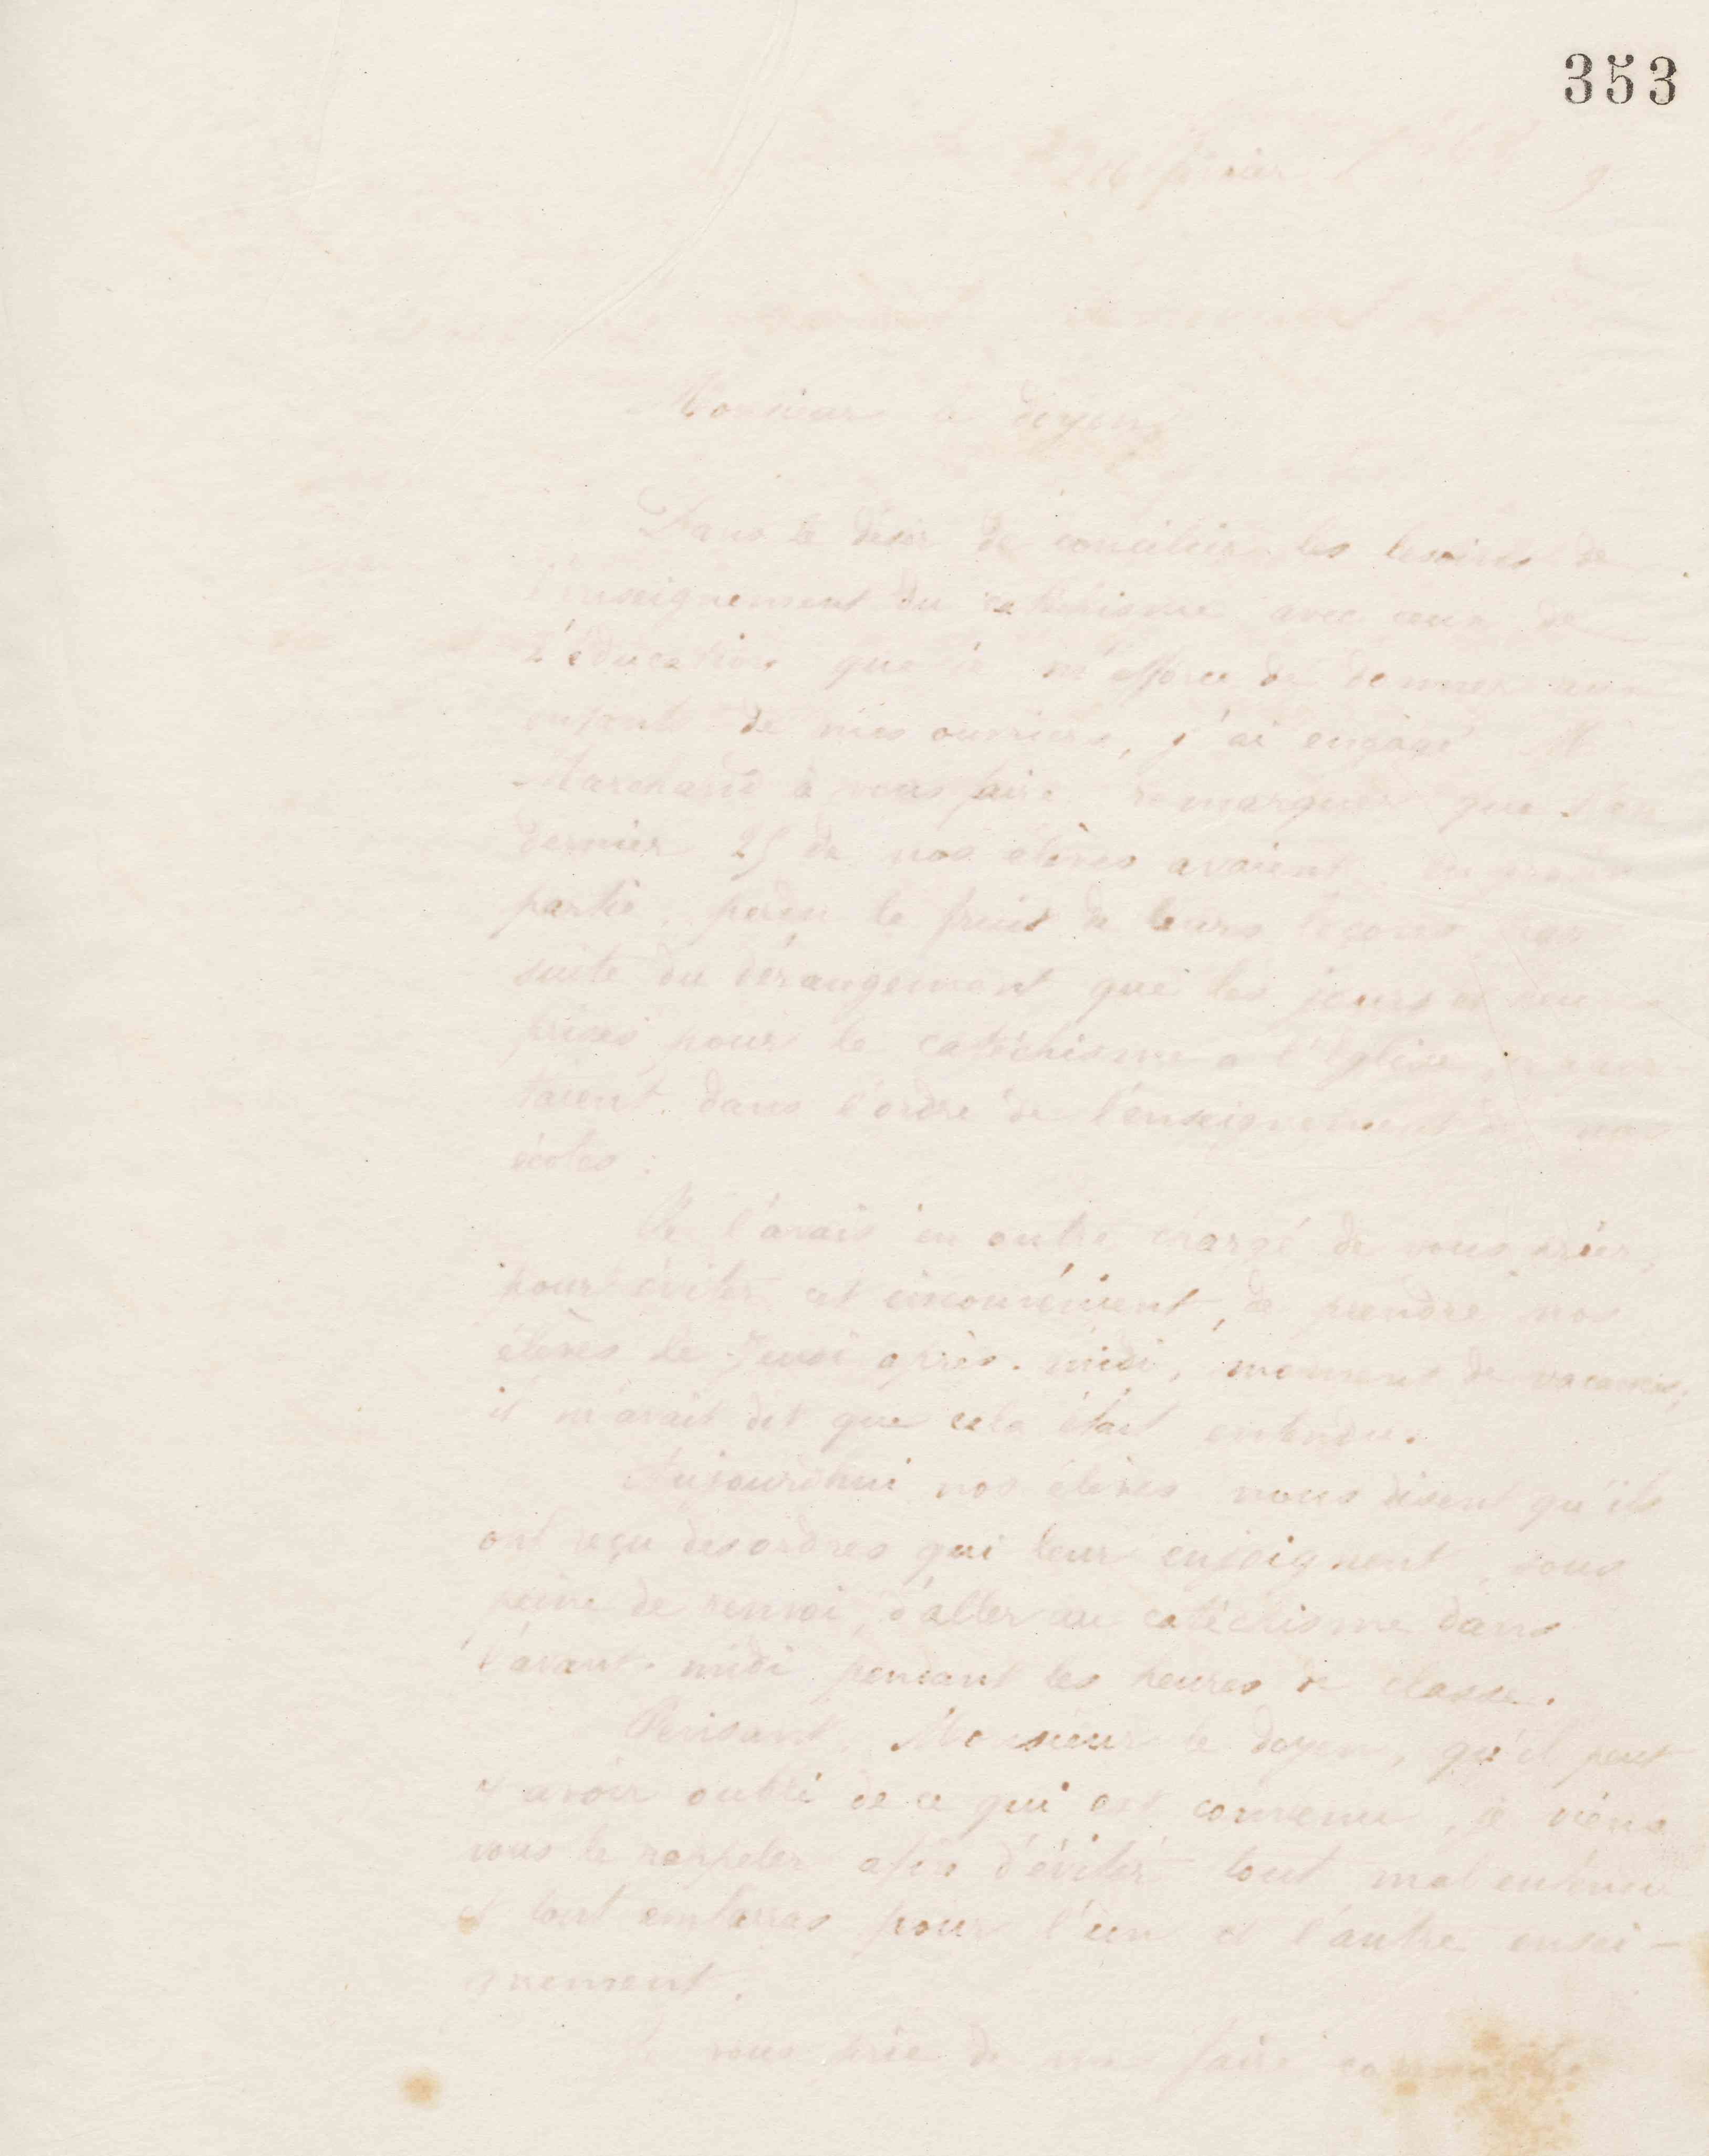 353
26 février
Monsieur le doyen
Dans le désir de concilier les besoins de
l'enseignement du catéchisme avec ceux de
l'éducation que je m'efforce de donner aux
enfants de mes ouvriers, j'ai engagé M
Marchand à vous faire remarquer que l'an
dernier 25 de nos élèves avaient, en grande
partie, perdu le fruit de leurs leçons par
suite du dérangement que les jours et heures
prises pour le catéchisme à l'Eglise,
dans l'ordre de l'enseignement de nos
écoles.
Je l'avais en outre chargé de vous prier,
pour éviter cet inconvénient, de prendre nos
élèves le Jeudi après-midi, moment de vacances,
il m'avait dit que cela était entendu.
Aujourdhui nos élèves nous disent qu'ils
ont reçu des ordres qui leur enjoignent, sous
peine de renvoi, d'aller au catéchisme dans
l'avant-midi pendant les heures de classe.
Pensant, Monsieur le doyen, qu'il peut
y avoir oubli de ce qui est convenu, je viens
vous le rappeler afin d'éviter tout mal entendu
et tout embarras pour l'un et l'autre ensei-
gnement.
Je vous prie de me faire connaître